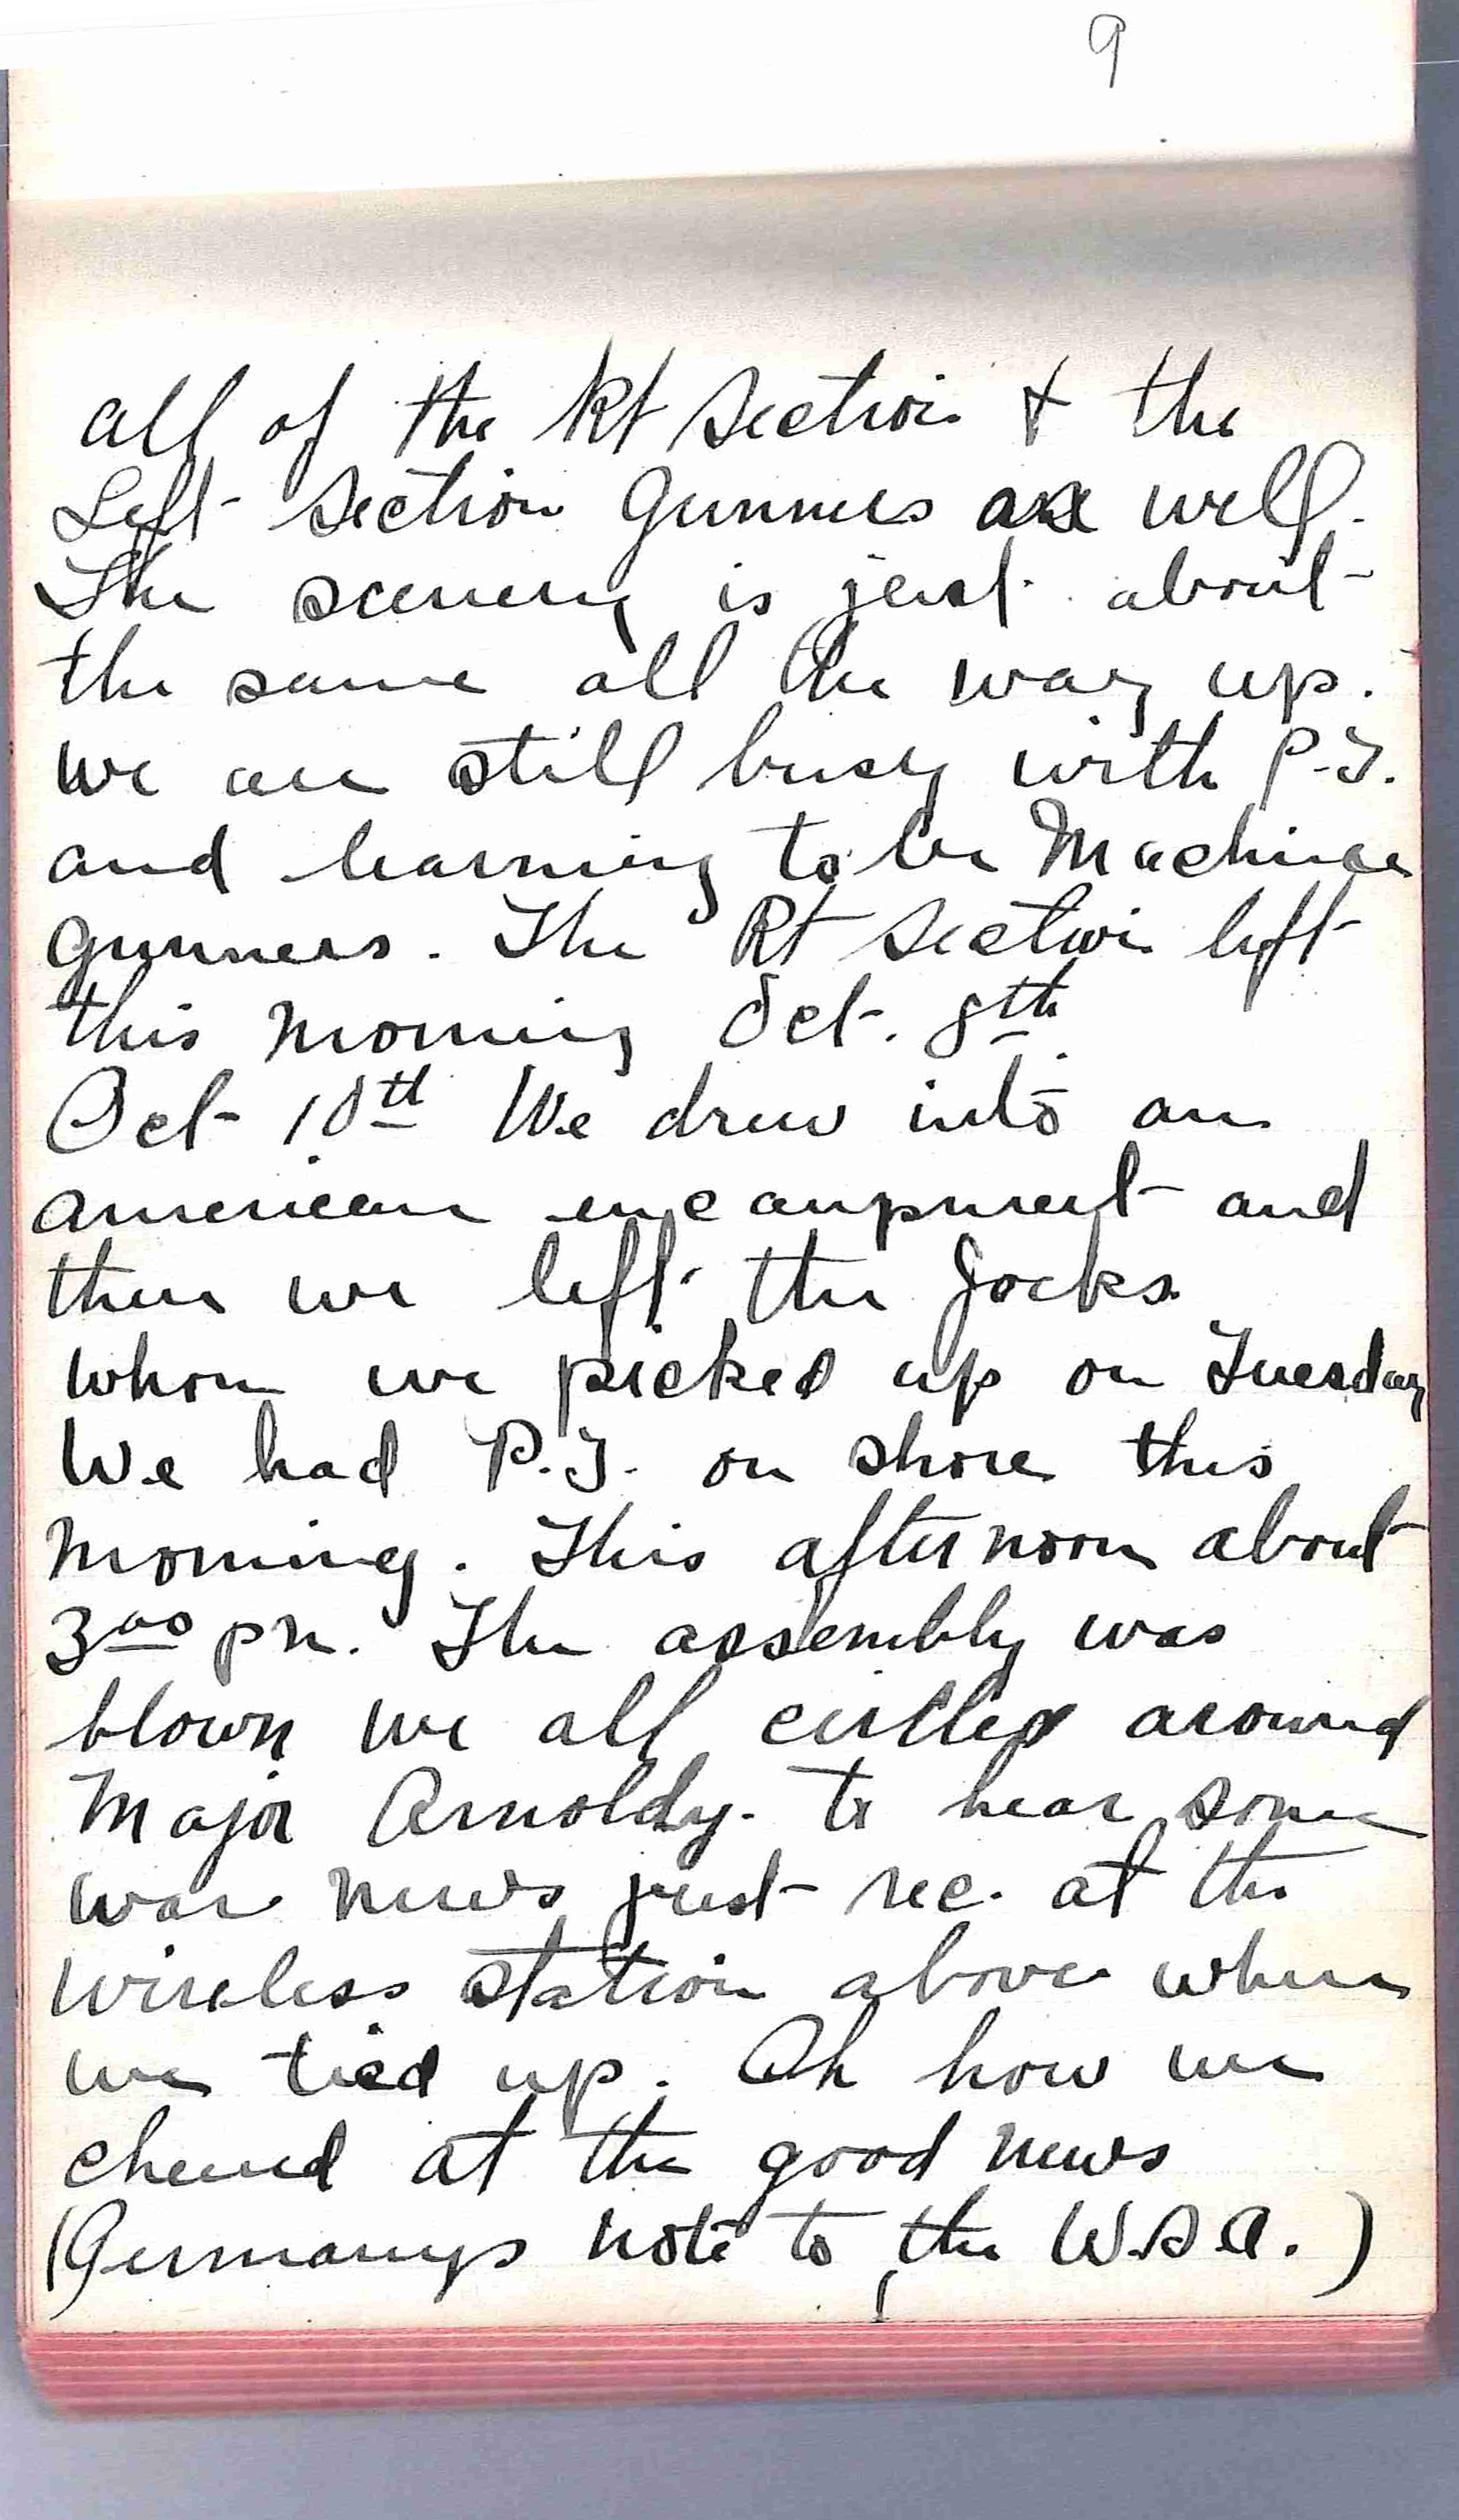 9
all of the Rt Section & the
Left Section Gunners as well.
The scenery is just about
the same all the way up.
We are still busy with P.T.
and learning to be Machine
gunners. The Rt Section left
this morning Oct. 8th.
Oct 10th We drew into an
American encampment and
then we left the Jocks
whom we picked up on Tuesday
We had P.T. on shore this
morning. This afternoon about
300 pm. The assembly was
blown we all circled around
Major Arnoldy. to hear some
war news just rec. at the
wireless station above where
we tied up. Oh how we
cheered at the good news
(Germanys note to the U.S.A.)